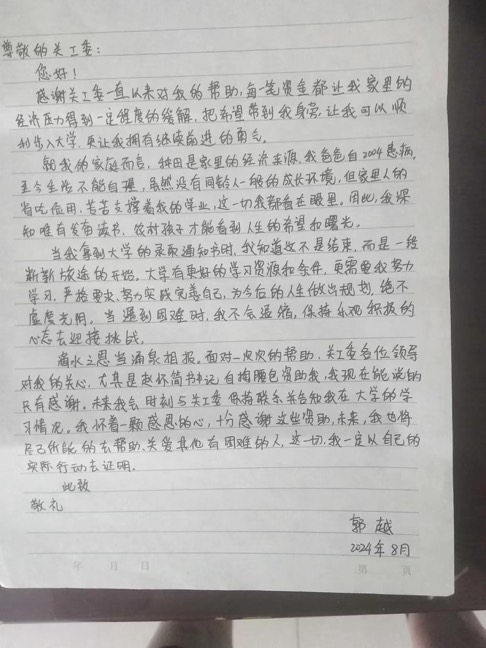 尊敬的关工委：
您好！
感谢关工委一直以来对我的帮助，每一笔资金都让我家里的
经济压力得到一定程度的缓解，把希望带到我身旁，让我可以顺
利步入大学，更让我拥有继续前进的勇气。
就我的家庭而言，种田是家里的经济来源，我爸爸自2004患病，
至今生活不能自理，虽然没有同龄人一般的成长环境，但家里人的
省吃俭用，苦苦支撑着我的学业，这一切我都看在眼里。因此，我深
知唯有发奋读书，农村孩子才能看到人生的希望和曙光。
当我拿到大学的录取通知书时，我知道这不是结束，而是一段
新新旅途的开始。大学有更好的学习资源和条件，更需要我努力
学习，严格要求，努力实践完善自己，为今后的人生做出规划，绝不
虚度光阴。当遇到困难时，我不会退缩，保持乐观积极的
心态去迎接挑战。
滴水之恩当涌泉相报。面对一次次的帮助，关工委各位领导
对我的关心，尤其是赵怀简书记自掏腰包资助我，我现在能说的
只有感谢。未来我会时刻与关工委保持联系并告知我在大学的学
习情况。我怀着一颗感恩的心，十分感谢这些资助，未来，我也将
尽己所能的去帮助、关爱其他有困难的人，这一切，我一定以自己的
实际行动去证明。
此致
敬礼
郭越
2024年8月
年 月 日 第 页